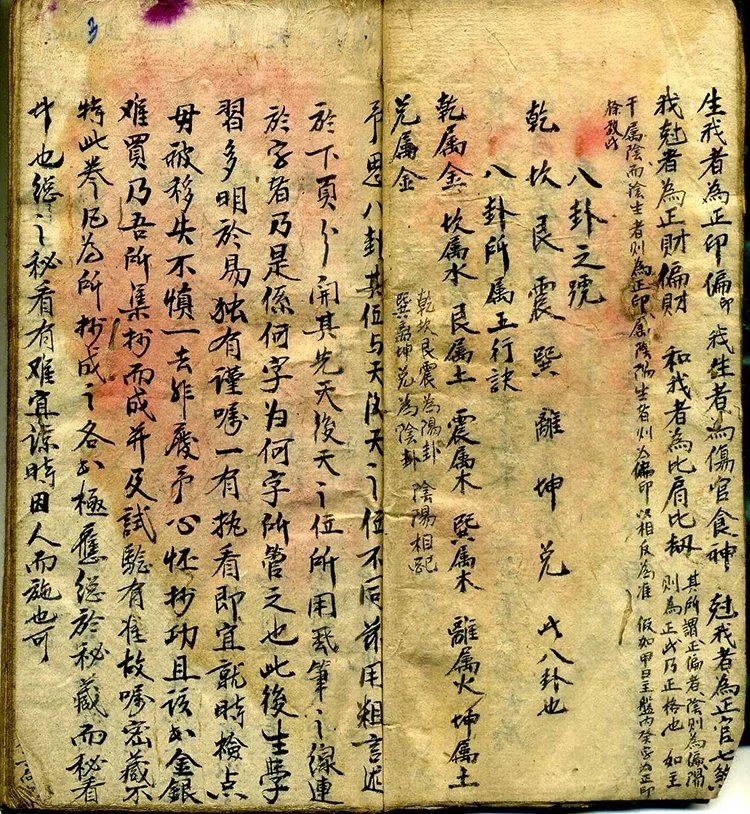 生我者為正印偏印 我生者為傷官食神 尅我者為正官七煞
我尅者為正財偏財 和我者為比肩比劫 其所謂正偏者陰則為偏陽
則為正或乃正格也 如主
干属陰而陰生者則為正印属陰陽生者則為偏印以相反為准 假如甲日主盤內癸字為正印
餘敩此
八卦之號
乾坎艮震巽離坤兑 此八卦也
八卦所属五行訣
乾属金 坎属水 艮属土 震属木 巽属木 離属火 坤属土
兑属金
乾坎艮震為陽卦
巽離坤兑為陰卦 陰陽相配
予思八卦其位与天後天之位不同兹用粗言述
於下頁分開其先天後天之位所用硃筆之線連
於字者乃是係何字為何字所管之也此後生學
習多明於易独有謹嘱一有执看即宜就時檢点
毋被移失不慎一去非廢予心怀抄功且該书金銀
难買乃吾所集抄而成并及試驗有准故嘱密藏不
特此拳凡為所抄成之各书極應總於秘藏而秘看
此也總之秘看有难宜諒時因人而施也可